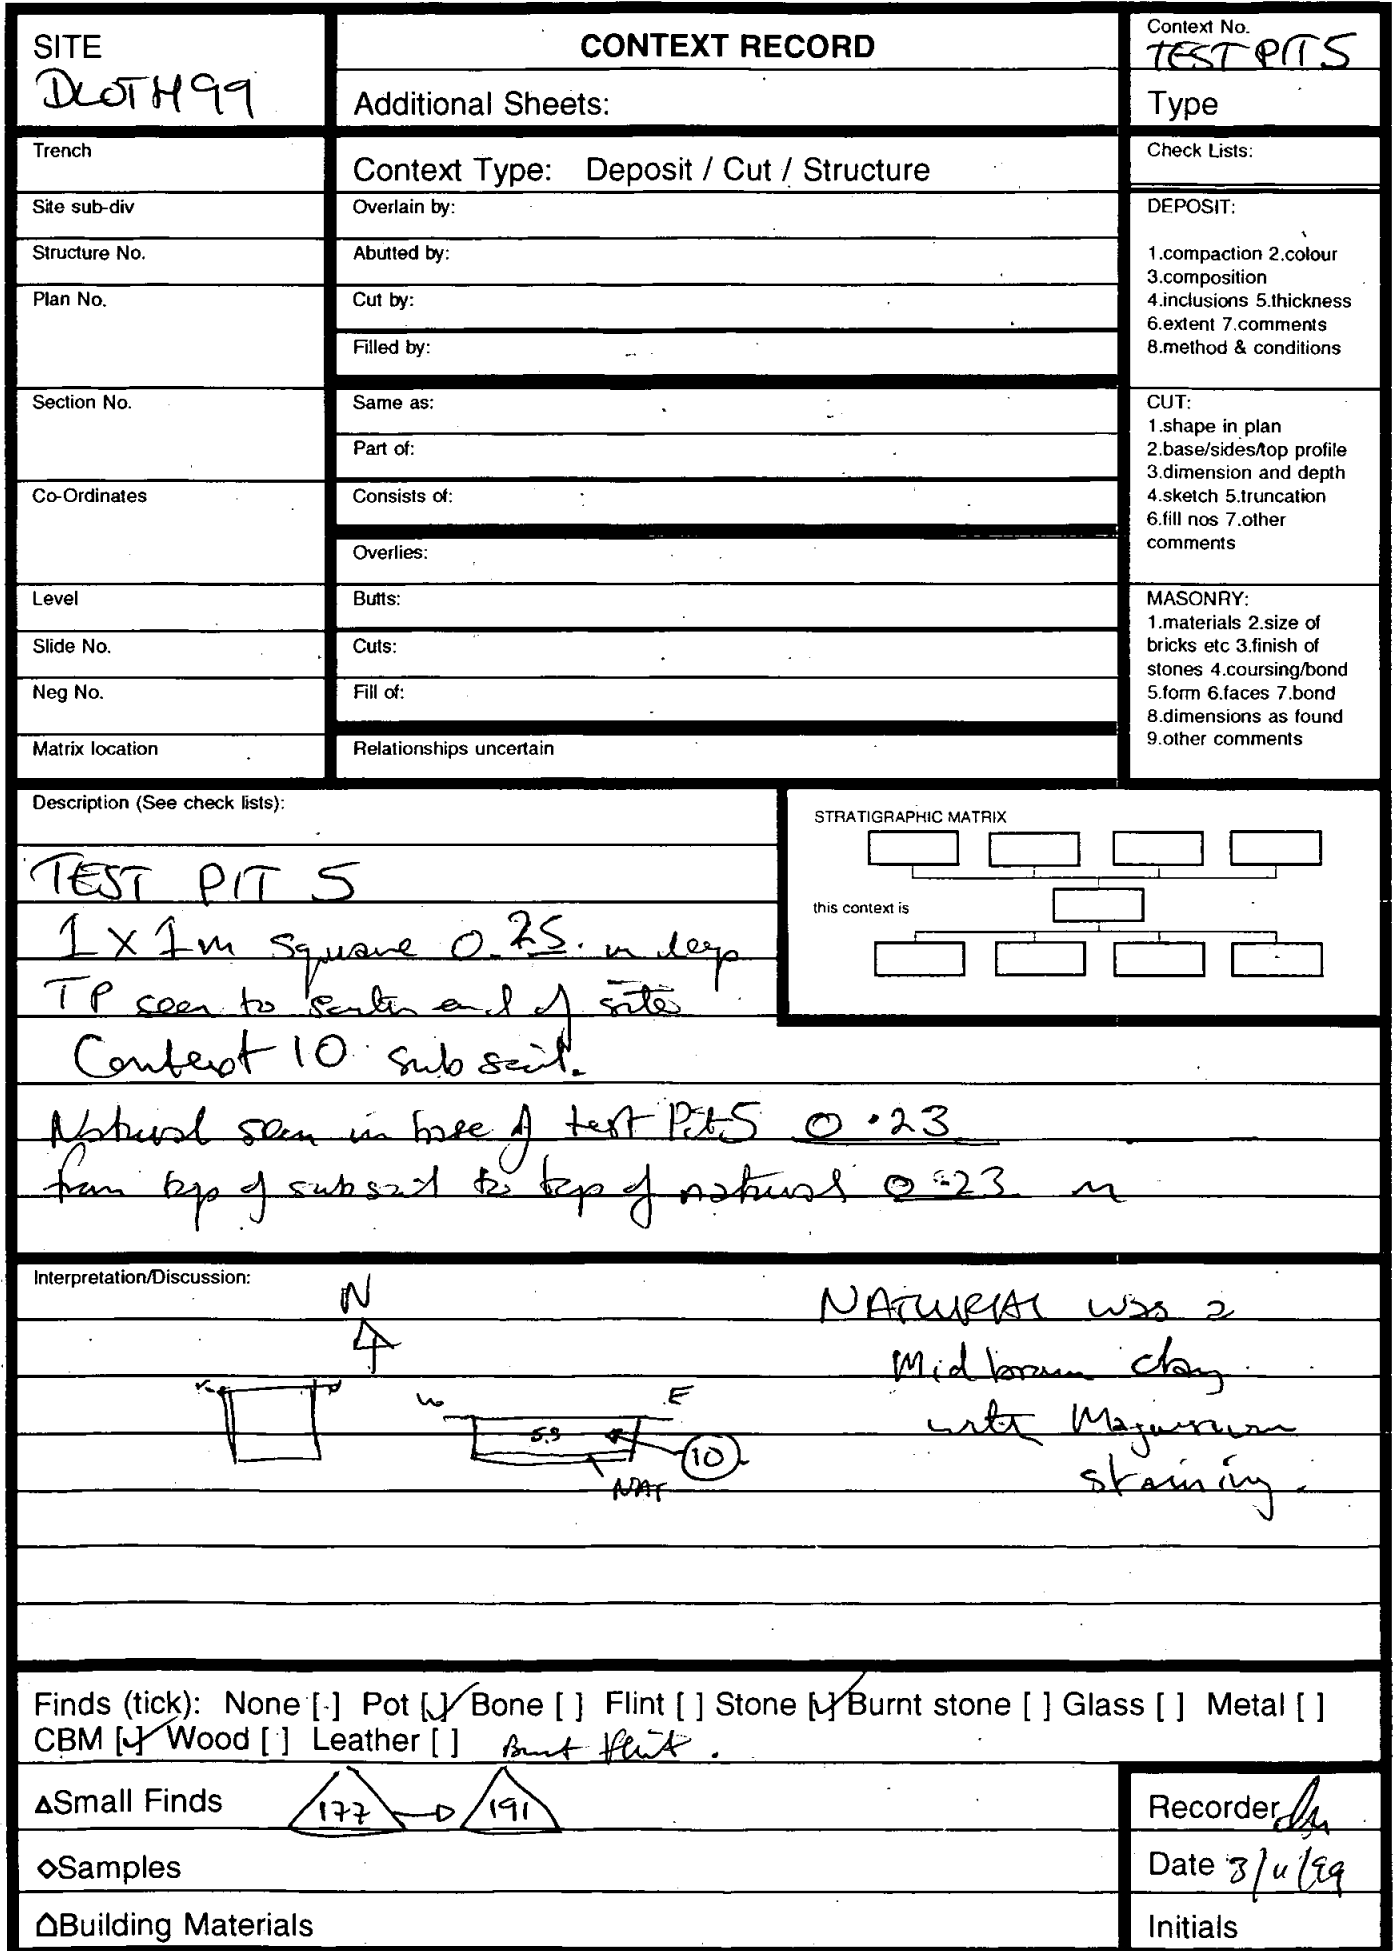 SITE
DLOTH99
CONTEXT RECORD
Additional Sheets:
Context No.
TEST PIT 5
Type
Trench
Site sub-div
Structure No.
Plan No.
Section No.
Co-Ordinates
Level
Slide No.
Neg No.
Matrix location
Context Type: Deposit / Cut / Structure
Overlain by:
Abutted by:
Cut by:
Filled by:
Same as:
Part of:
Consists of:
Overlies:
Butts:
Cuts:
Fill of:
Relationships uncertain
Check Lists:
DEPOSIT:
1.compaction 2.colour
3.composition
4.inclusions 5.thickness
6.extent 7.comments
8.method & conditions
CUT:
1.shape in plan
2.base/sides/top profile
3.dimension and depth
4.sketch 5.truncation
6.fill nos 7.other
comments
MASONRY:
1.materials 2.size of
bricks etc 3.finish of
stones 4.coursing/bond
5.form 6.faces 7.bond
8.dimensions as found
9.other comments
Description (See check lists):
TEST PIT 5
1 X 1m square 0.25 m deep
TP seen to end of site
Context 10 subsoil.
Natural seen in base of test Pit 5 0.23
from top of subsoil to top of natural 0.23 m
STRATIGRAPHIC MATRIX
this context is
Interpretation/Discussion:
N
W E
S.S
10
NAT
NATURAL was a
Mid brown clay
with Magnesium
staining.
Finds (tick): None [ ] Pot [✓] Bone [ ] Flint [ ] Stone [✓] Burnt stone [ ] Glass [ ] Metal [ ]
CBM [✓] Wood [ ] Leather [ ] Burnt flint.
△Small Finds 177 → 191
◇Samples
Building Materials
Recorder
Date 3/11/99
Initials